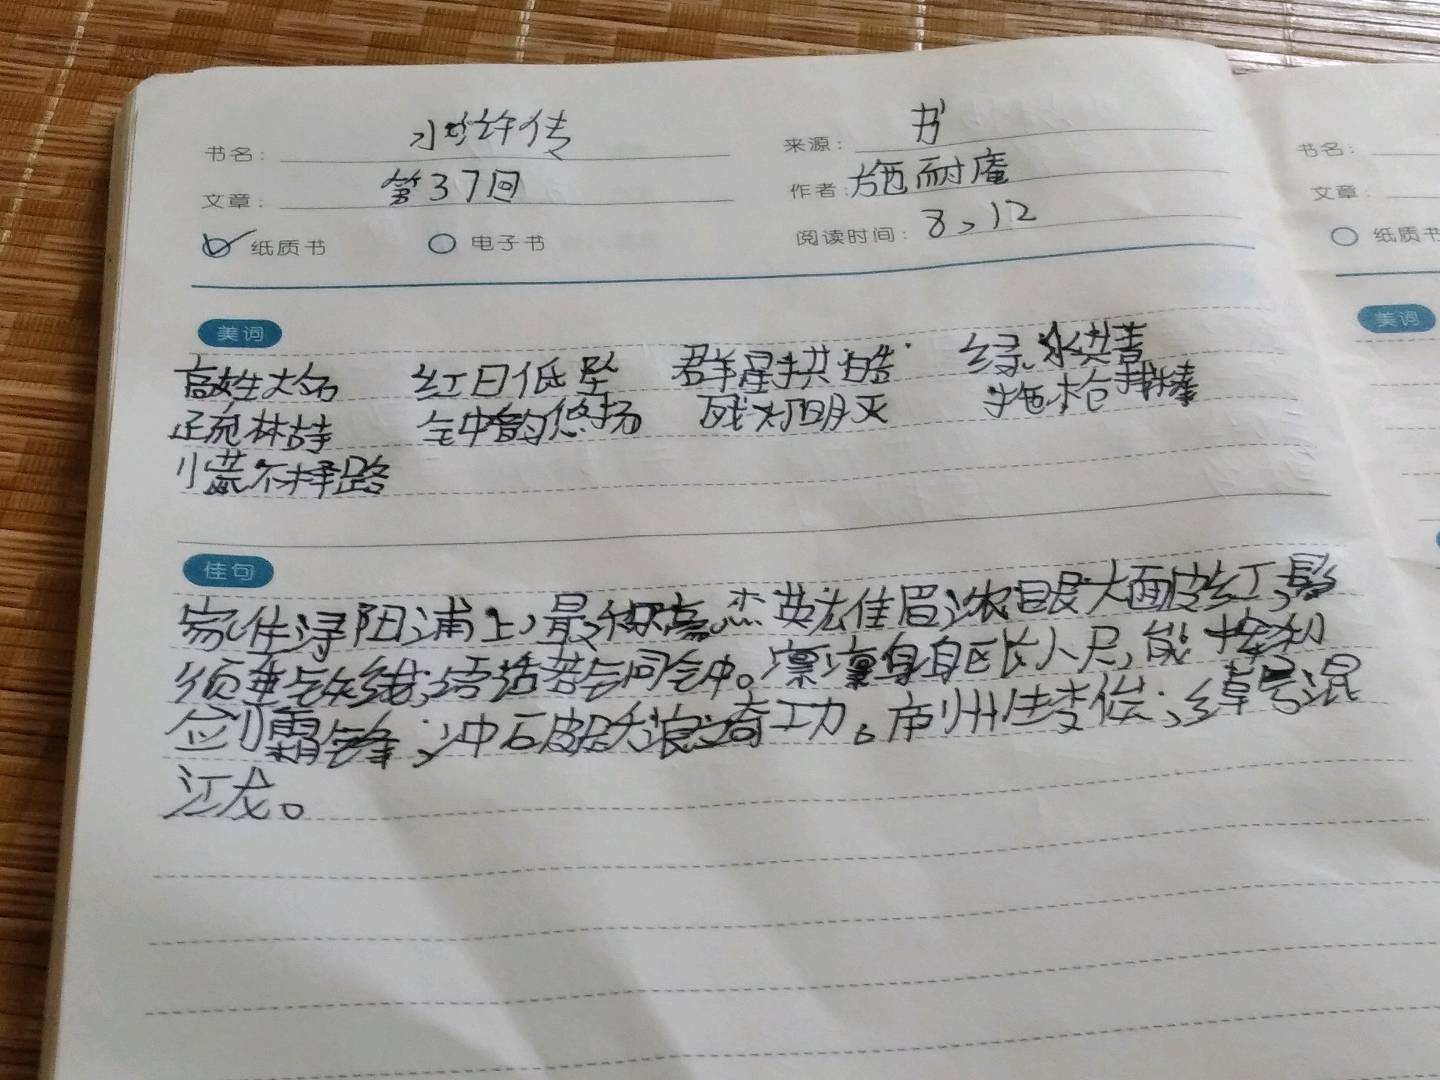 书名： 水浒传 来源： 书 书名：
文章： 第37回 作者： 施耐庵 文章：
纸质书 电子书 阅读时间： 8、12 纸质书
美词 美词
高姓大名 红日低坠 群星拱皓 绿水共青
疏林古寺 钟韵悠扬 残灯明灭 拖枪拽棒
慌不择路
佳句
家住浔阳浦上，最称豪杰英雄。眉浓眼大面皮红，髭
须垂铁线，语话若铜钟。凛凛身躯长八尺，能挥利
剑霜锋，冲波跃浪立奇功。庐州生李俊，绰号混
江龙。